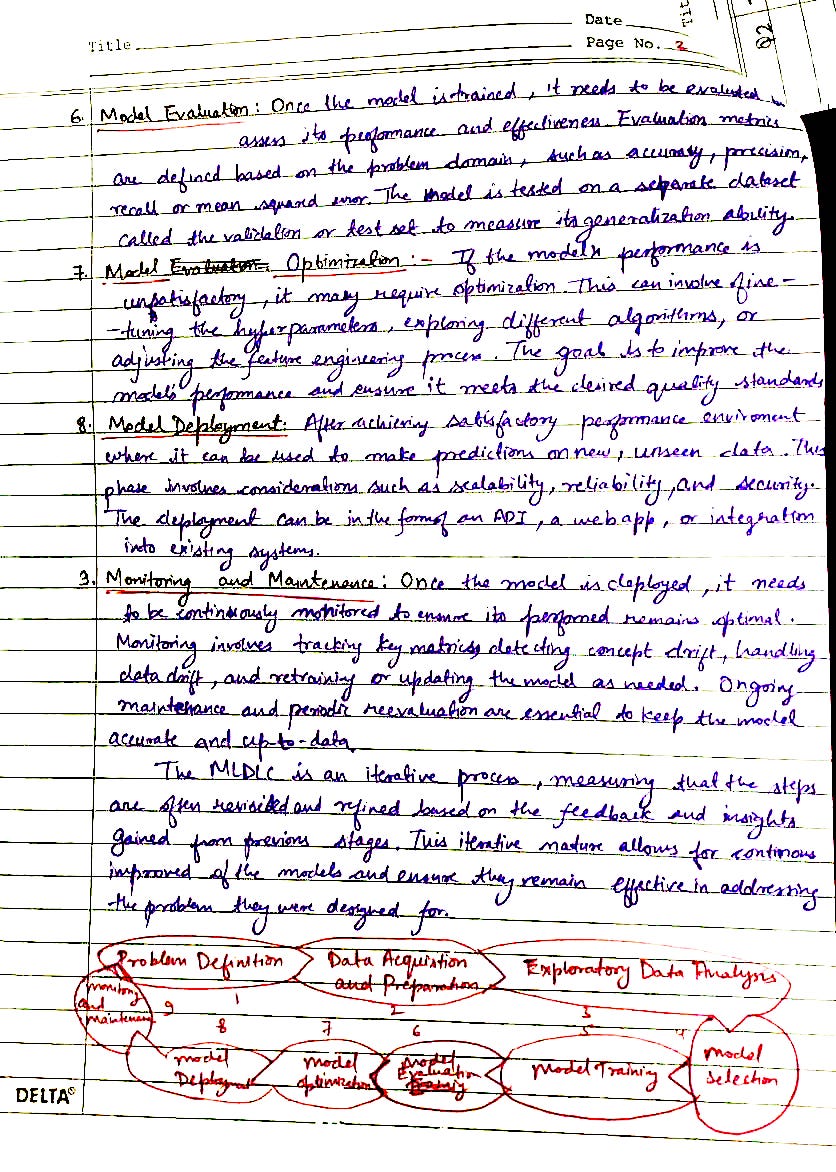 Title
Date
Page No. 2
Q2
6. Model Evaluation: Once the model is trained, it needs to be evaluated
assess its performance and effectiveness. Evaluation metrics
are defined based on the problem domain, such as accuracy, precision,
recall or mean squared error. The model is tested on a separate dataset
called the validation or test set to measure its generalization ability.
7. Model Evaluation. Optimization :- If the model's performance is
unsatisfactory, it may require optimization. This can involve fine-
-tuning the hyperparameters, exploring different algorithms, or
adjusting the feature engineering process. The goal is to improve the
model's performance and ensure it meets the desired quality standards
8. Model Deployment: After achieving satisfactory performance enviroment
where it can be used to make predictions on new, unseen data. This
phase involves considerations such as scalability, reliability, and security.
The deployment can be in the form of an API, a web app, or integration
into existing systems.
3. Monitoring and Maintenance: Once the model is deployed, it needs
to be continuously monitored to ensure its performed remains optimal.
Monitoring involves tracking key matrics, detecting concept drift, handling
data drift, and retraining or updating the model as needed. Ongoing
maintenance and periodic reevaluation are essential to keep the model
accurate and up-to-data.
The MLDLC is an iterative process, measuring that the steps
are often revisited and refined based on the feedback and insights
gained from previous stages. This iterative nature allows for continous
improved of the models and ensure they remain effective in addressing
the problem they were designed for.
Problem Definition
Data Acquistion
and Preparation
Exploratory Data Analysis
monitoring
and
maintenance
9 1 2 3
8 7 6 5 4
Model
Deployment
Model
optimization
Model
Evaluation
Model Training
Model
Selection
DELTA®